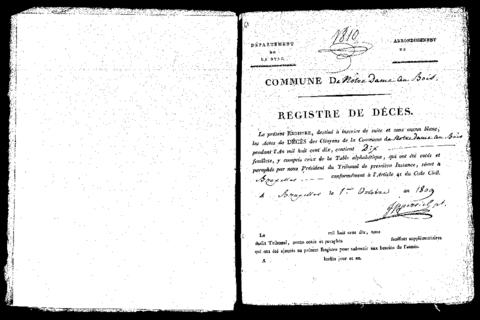 1810
DÉPARTEMENT
DE
LA DYLE.
ARRONDISSEMENT
DE
COMMUNE De Nôtre Dame au Bois.
REGISTRE DE DÉCÈS.
Le présent REGISTRE, destiné à inscrire de suite et sans aucun blanc,
les Actes de DÉCÈS des Citoyens de la Commune de Notre Dame au Bois
pendant l'An mil huit cent dix, contient Dix
feuillets, y compris ceux de la Table alphabétique, qui ont été cotés et
paraphés par nous Président du Tribunal de première Instance, séant à
Bruxelles conformément à l'Article 41 du Code Civil.
A Bruxelles le 1er Octobre an 1809
Le mil huit cent dix, nous
audit Tribunal, avons cotés et paraphés feuillets supplémentaires
qui ont été ajoutés au présent Registre pour subvenir aux besoins de l'année.
A lesdits jour et an.